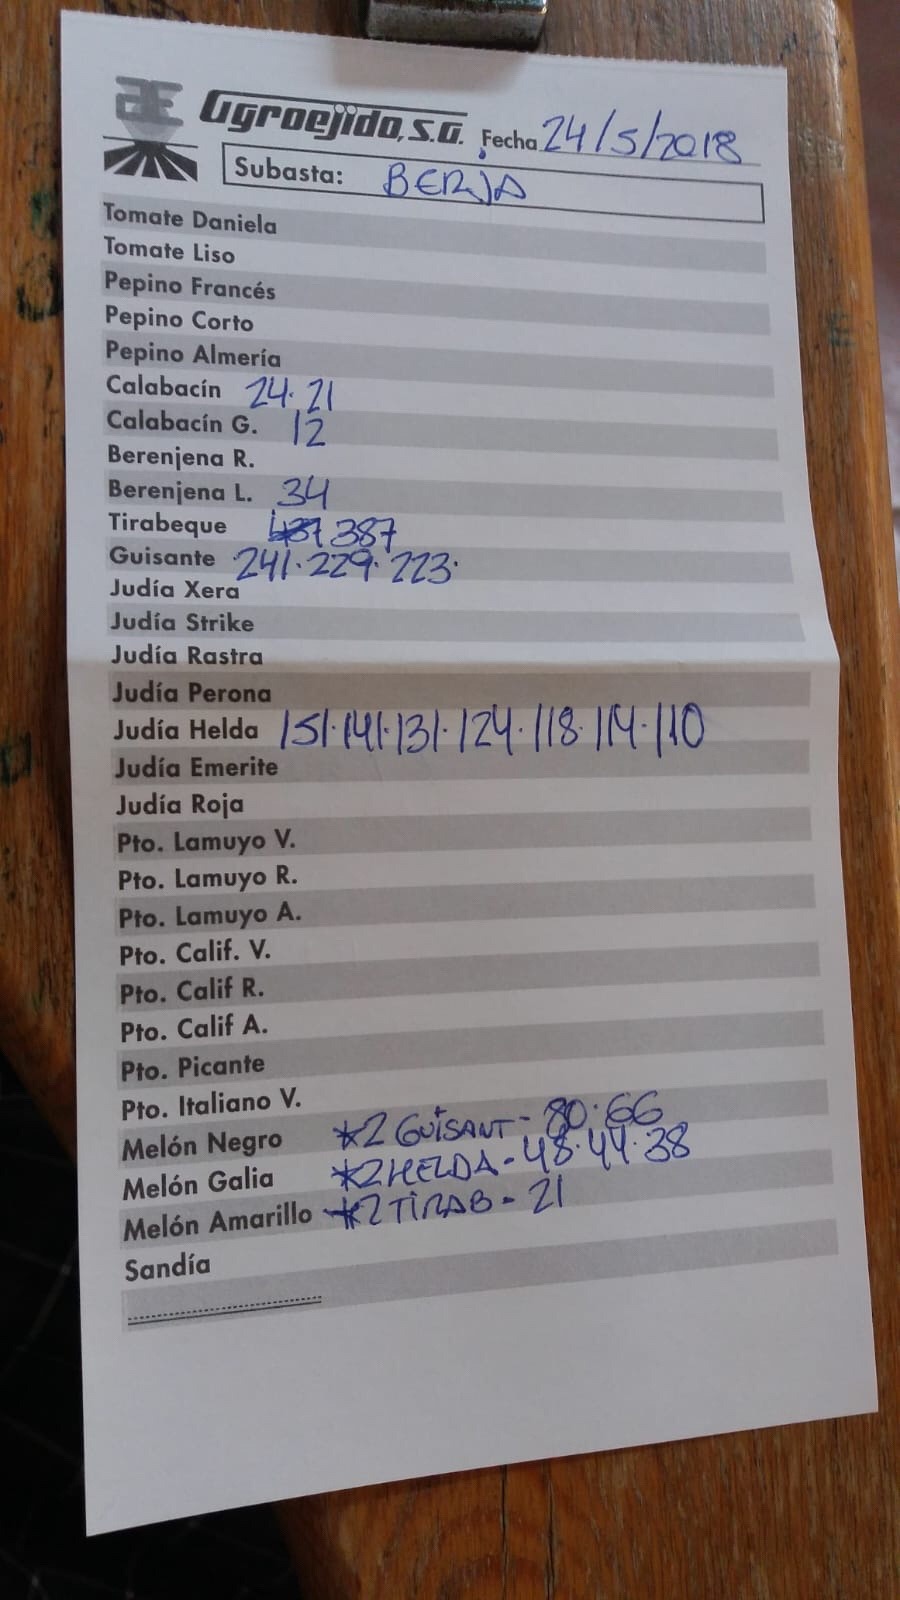 Agroejido, S.A. Fecha 24/5/2018
Subasta: BERJA
Tomate Daniela
Tomate Liso
Pepino Francés
Pepino Corto
Pepino Almería
Calabacín 24. 21
Calabacín G. 12
Berenjena R.
Berenjena L. 34
Tirabeque 387
Guisante 241. 229. 223.
Judía Xera
Judía Strike
Judía Rastra
Judía Perona
Judía Helda 151. 141. 131. 124. 118. 114. 110
Judía Emerite
Judía Roja
Pto. Lamuyo V.
Pto. Lamuyo R.
Pto. Lamuyo A.
Pto. Calif. V.
Pto. Calif R.
Pto. Calif A.
Pto. Picante
Pto. Italiano V.
Melón Negro *2 GUISANT - 80. 66
Melón Galia *2 HELDA - 48. 44. 38
Melón Amarillo *2 TIRAB - 21
Sandía